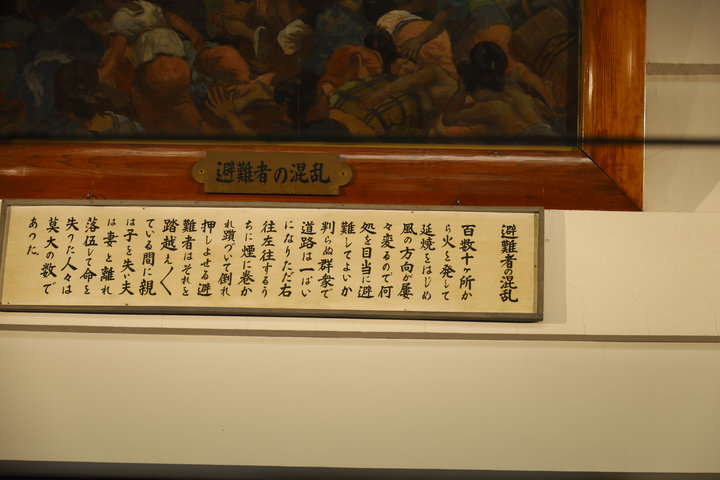 避難者の混乱
避難者の混乱
百数十ヶ所か
ら火を発して
延焼をはじめ
風の方向が屡
々変るので何
処を目当に避
難してよいか
判らぬ群衆で
道路は一ぱい
になりただ右
往左往するう
ちに煙に巻か
れ躓づいて倒れ
押しよせる避
難者はそれを
踏越え〱
ている間に親
は子を失い夫
は妻と離れ
落伍して命を
失った人々は
莫大の数で
あった。